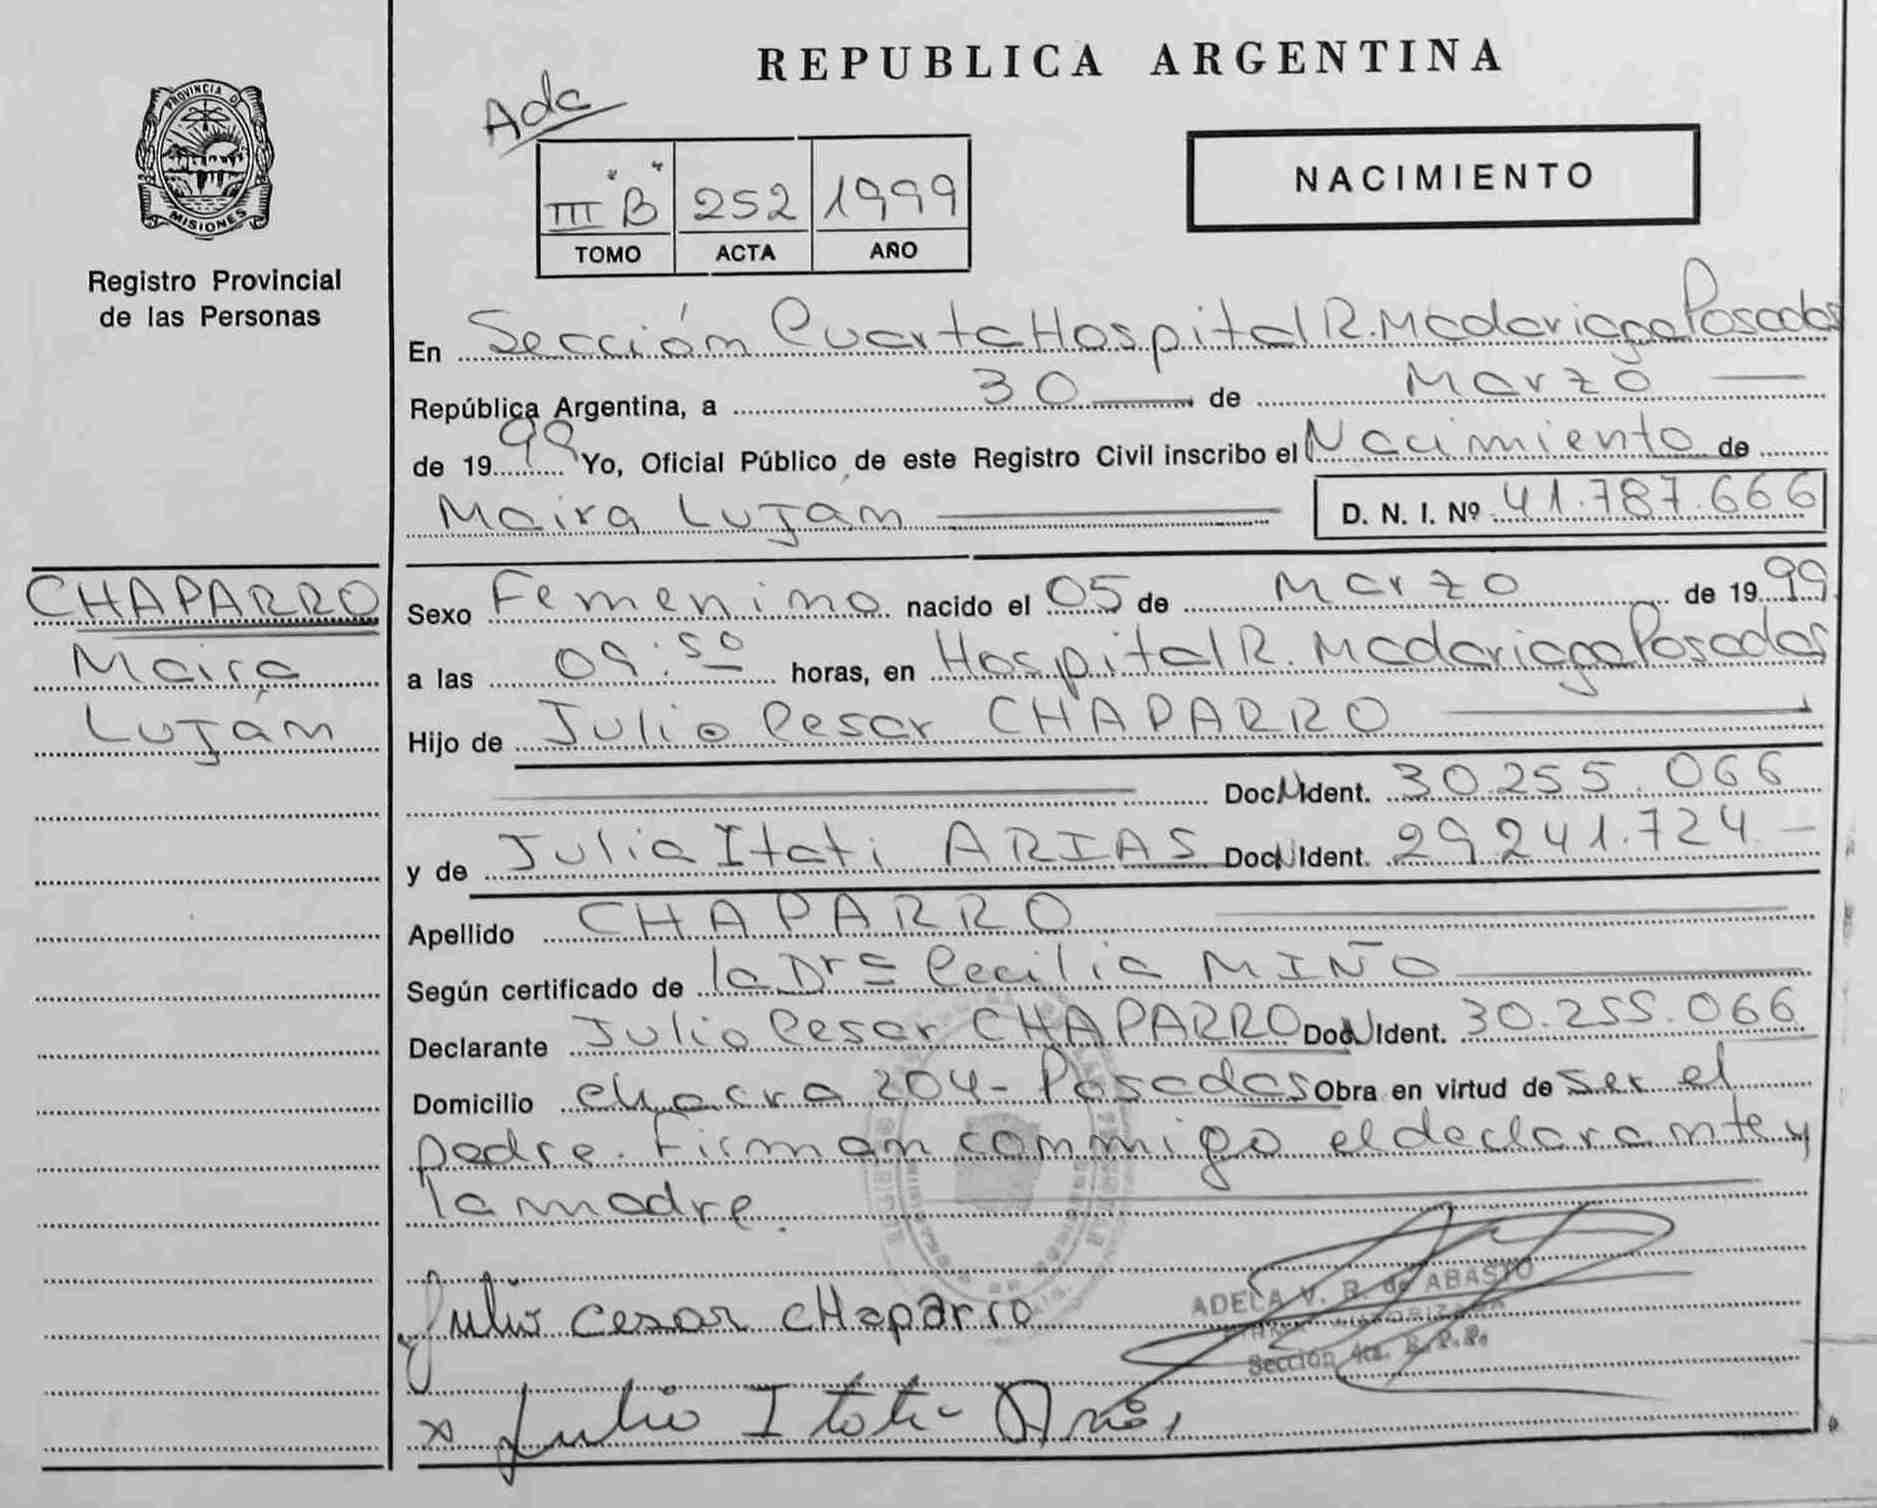 REPUBLICA ARGENTINA
Ada
PROVINCIA DE
MISIONES
Registro Provincial
de las Personas
III "B" 252 1999
TOMO ACTA AÑO
NACIMIENTO
En Sección Cuarta Hospital R. Madariaga Posadas
República Argentina, a 30 de Marzo
de 1999 Yo, Oficial Público de este Registro Civil inscribo el Nacimiento de
Maira Lujan D. N. I. Nº 41.787.666
CHAPARRO
Maira
Luján
Sexo Femenino nacido el 05 de Marzo de 1999
a las 09:50 horas, en Hospital R. Madariaga Posadas
Hijo de Julio Cesar CHAPARRO
Doc. Ident. 30.255.066
y de Julia Itati ARIAS Doc. Ident. 29.241.724
Apellido CHAPARRO
Según certificado de la Dra Cecilia MIÑO
Declarante Julio Cesar CHAPARRO Doc. Ident. 30.255.066
Domicilio chacra 204 - Posadas Obra en virtud de ser el
padre. Firman conmigo el declarante y
la madre.
Julio Cesar CHaparro
ADELA V. B. de ABASTO
FIRMA AUTORIZADA
Sección 4ta. R.P.P.
x Julia Itati Arias